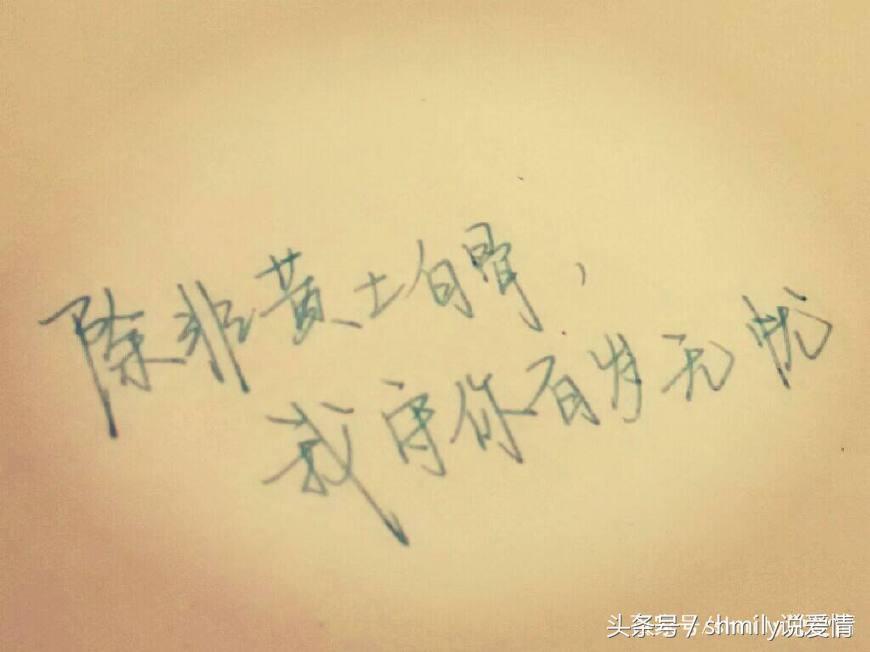 除非黄土白骨，
我守你百岁无忧
头条号 / shmily说爱情